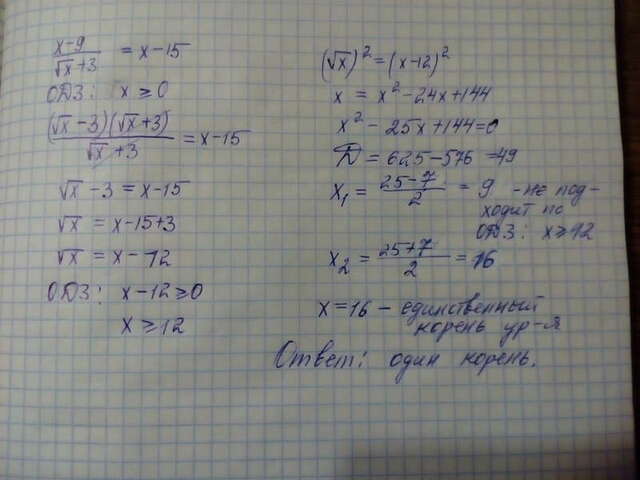 (x-9)/(√x+3) = x-15
ОДЗ: x ≥ 0
((√x-3)(√x+3))/(√x+3) = x-15
√x-3 = x-15
√x = x-15+3
√x = x-12
ОДЗ: x-12 ≥ 0
x ≥ 12
(√x)² = (x-12)²
x = x²-24x+144
x²-25x+144=0
D = 625-576=49
x₁ = (25-7)/2 = 9 -не под-
ходит по
ОДЗ: x≥12
x₂ = (25+7)/2 = 16
x=16 - единственный
корень ур-я
Ответ: один корень.